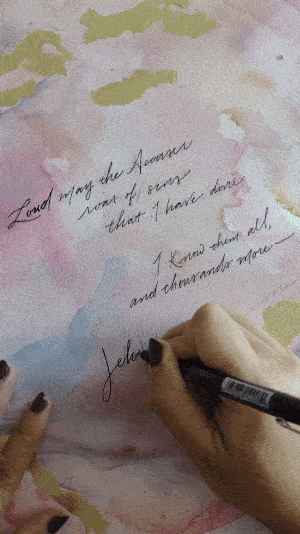 Loud may the Accuser
roar of sins
that I have done
I know them all,
and thousands more —
Jeho